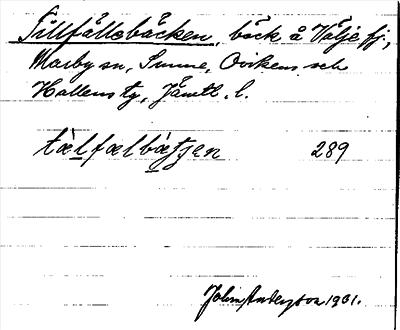 Tillfällebäcken, bäck å Välje fj,
Marby sn, Sunne, Ovikens och
Hallens tg, Jämtl. l.
tælfælbætjen 289
1931.